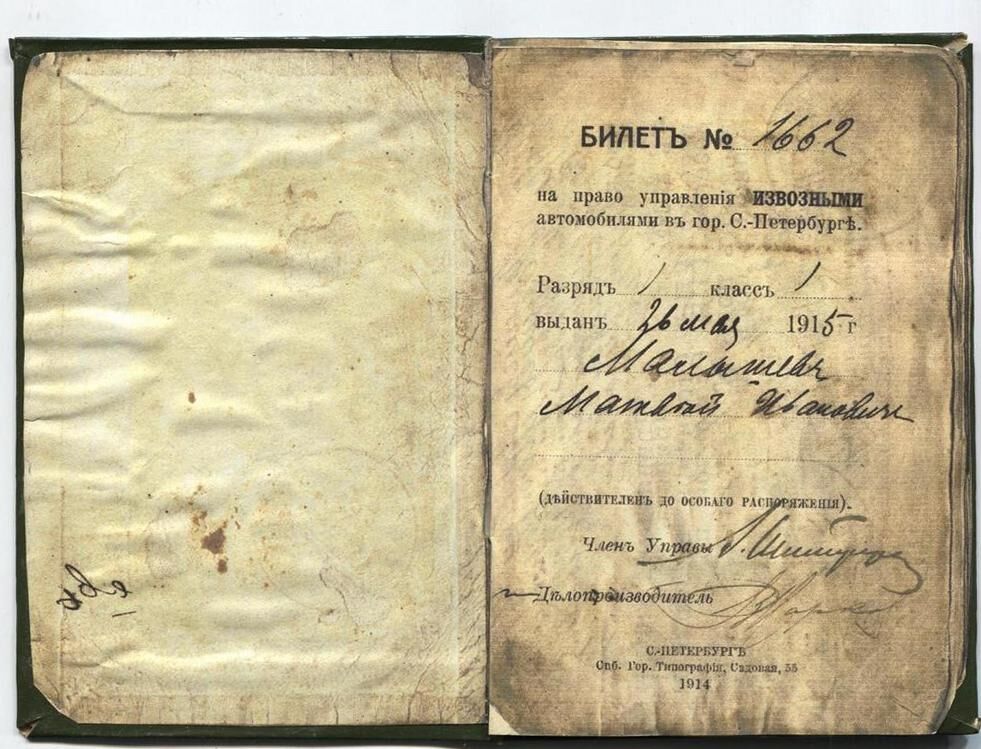 БИЛЕТЪ № 1662
на право управленія ИЗВОЗНЫМИ
автомобилями въ гор. С.-Петербургѣ.
Разрядъ 1 классъ 1
выданъ 26 мая 1915 г
Малышевъ
Матвѣй Ивановичъ
(ДѢЙСТВИТЕЛЕНЪ ДО ОСОБАГО РАСПОРЯЖЕНІЯ).
Членъ Управы
Дѣлопроизводитель
С.-ПЕТЕРБУРГЪ
Спб. Гор. Типографія, Садовая, 55
1914